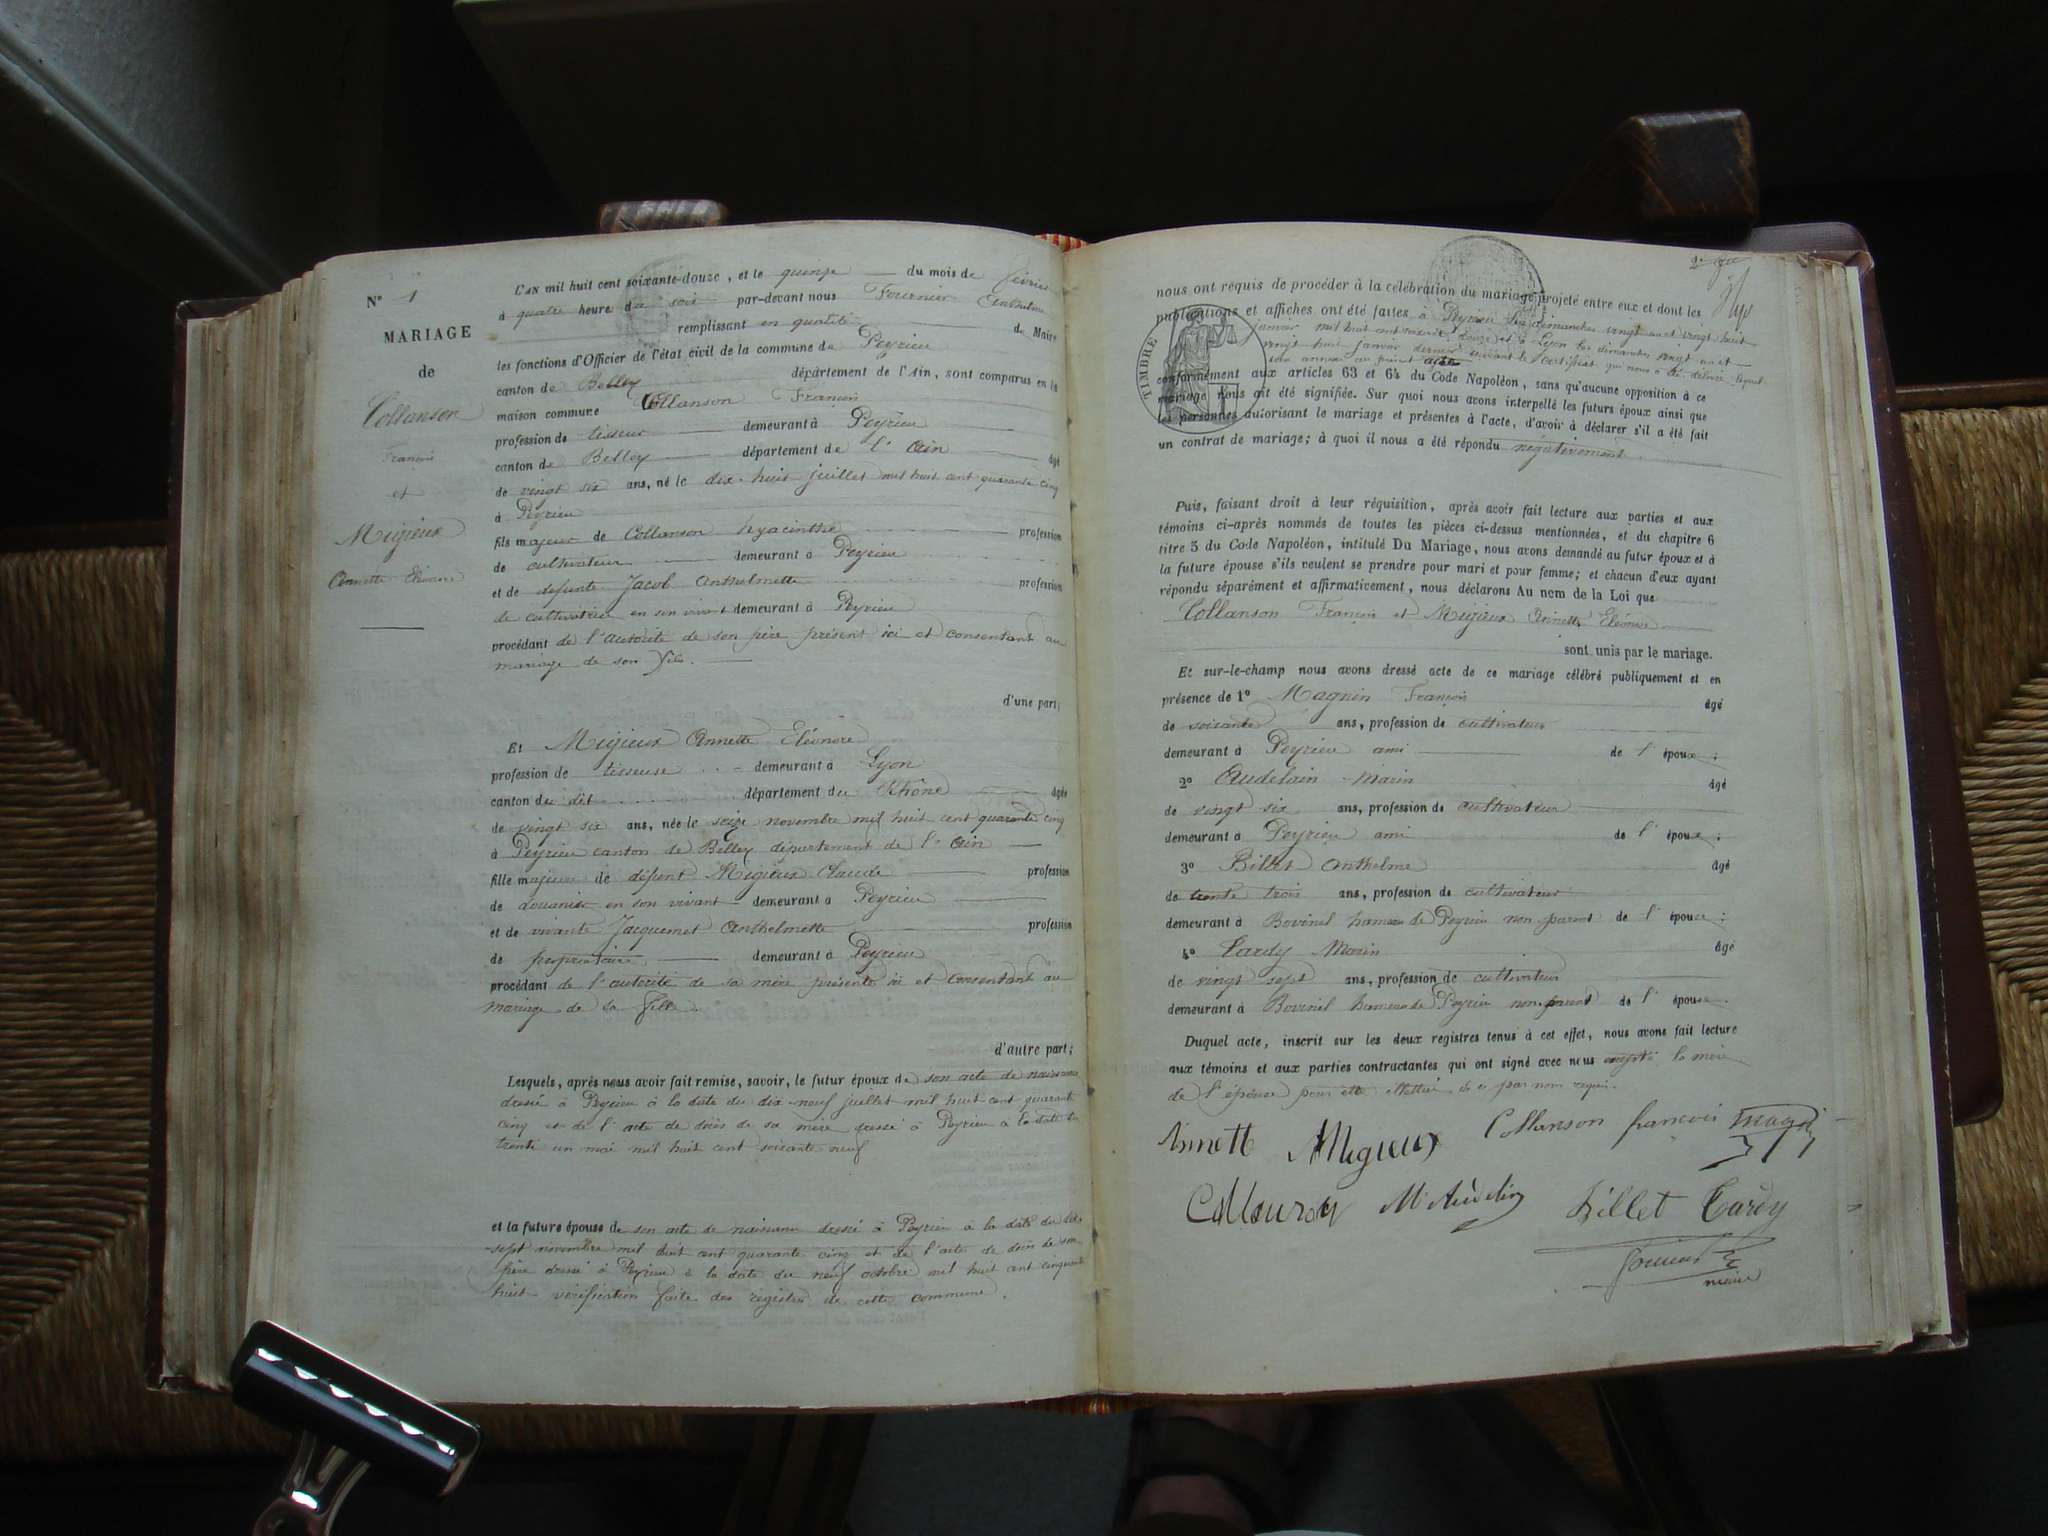 N° 1
MARIAGE
de
Collanson
François
et
Migieux
Annette Eléonore
L'AN mil huit cent soixante-douze, et le quinze du mois de février
à quatre heure du soir par-devant nous Fournier Anthelme
remplissant en qualité de Maire
les fonctions d'Officier de l'état civil de la commune de Peyrieu
canton de Belley département de l'Ain, sont comparus en la
maison commune Collanson François
profession de tisseur demeurant à Peyrieu
canton de Belley département de l'Ain âgé
de vingt six ans, né le dix-huit juillet mil huit cent quarante cinq
à Peyrieu
fils majeur de Collanson hyacinthe profession
de cultivateur demeurant à Peyrieu
et de defunte Jacob Anthelmette profession
de cultivatrice en son vivant demeurant à Peyrieu
procédant de l'autorité de son père présent ici et consentant au
mariage de son fils.
d'une part;
Et Migieux Annette Eléonore
profession de tisseuse demeurant à Lyon
canton de dit département du Rhône âgée
de vingt six ans, née le seize novembre mil huit cent quarante cinq
à Peyrieu canton de Belley département de l'Ain
fille majeure de défunt Migieux Claude profession
de douanier en son vivant demeurant à Peyrieu
et de vivante Jacquemet Anthelmette profession
de propriétaire demeurant à Peyrieu
procédant de l'autorité de sa mère présente ici et consentant au
mariage de sa fille.
d'autre part;
Lesquels, après nous avoir fait remise, savoir, le futur époux de son acte de naissance
dressé à Peyrieu à la date du dix-neuf juillet mil huit cent quarante
cinq et de l'acte de décès de sa mère dressé à Peyrieu à la date du
trente un mai mil huit cent soixante neuf
et la future épouse de son acte de naissance dressé à Peyrieu à la date du dix-
sept novembre mil huit cent quarante cinq et de l'acte de décès de son
père dressé à Peyrieu à la date du neuf octobre mil huit cent cinquante
huit vérification faite des registres de cette commune.
nous ont requis de procéder à la célébration du mariage projeté entre eux et dont les
publications et affiches ont été faites à Peyrieu les dimanches vingt un et vingt huit
janvier mil huit cent soixante douze et à Lyon les dimanches vingt un et
vingt huit janvier dernier suivant le certificat qui nous a été délivré lequel
sera annexé au présent acte
conformément aux articles 63 et 64 du Code Napoléon, sans qu'aucune opposition à ce
mariage nous ait été signifiée. Sur quoi nous avons interpellé les futurs époux ainsi que
les personnes autorisant le mariage et présentes à l'acte, d'avoir à déclarer s'il a été fait
un contrat de mariage; à quoi il nous a été répondu négativement.
TIMBRE
Puis, faisant droit à leur réquisition, après avoir fait lecture aux parties et aux
témoins ci-après nommés de toutes les pièces ci-dessus mentionnées, et du chapitre 6
titre 5 du Code Napoléon, intitulé Du Mariage, nous avons demandé au futur époux et à
la future épouse s'ils veulent se prendre pour mari et pour femme; et chacun d'eux ayant
répondu séparément et affirmativement, nous déclarons Au nom de la Loi que
Collanson François et Migieux Annette Eléonore
sont unis par le mariage.
Et sur-le-champ nous avons dressé acte de ce mariage célébré publiquement et en
présence de 1° Magnin François âgé
de soixante ans, profession de cultivateur
demeurant à Peyrieu ami de l'époux;
2° Audelain Marin âgé
de vingt six ans, profession de cultivateur
demeurant à Peyrieu ami de l'époux;
3° Billet Anthelme âgé
de trente trois ans, profession de cultivateur
demeurant à Bovinel hameau de Peyrieu non parent de l'épouse;
4° Tardy Marin âgé
de vingt sept ans, profession de cultivateur
demeurant à Bovinel hameau de Peyrieu non parent de l'épouse.
Duquel acte, inscrit sur les deux registres tenus à cet effet, nous avons fait lecture
aux témoins et aux parties contractantes qui ont signé avec nous excepté la mère
de l'épouse pour être illettrée de ce par nous requis.
Annette Migieux Collanson françois
M Audelin Billet Tardy
maire